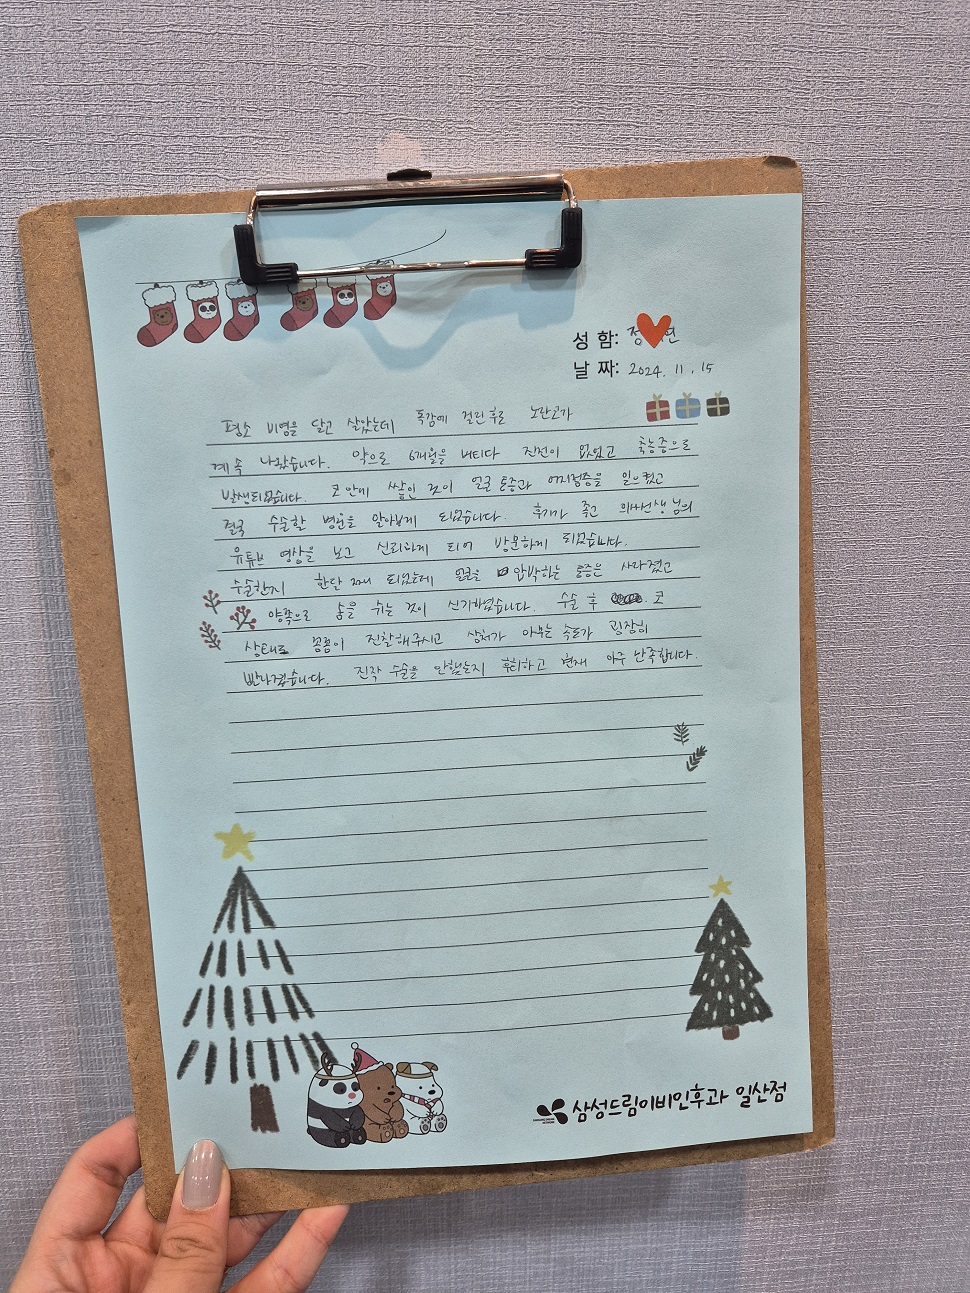 성 함: 정 연
날 짜: 2024. 11. 15
평소 비염을 달고 살았는데 독감에 걸린 후로 노란코가
계속 나왔습니다. 약으로 6개월을 버티다 진전이 없었고 축농증으로
발생되었습니다. 코 안에 쌓인 것이 얼굴 통증과 어지러증을 일으켰고
결국 수술할 병원을 알아보게 되었습니다. 후기가 좋고 의사선생님의
유튜브 영상을 보고 신뢰하게 되어 방문하게 되었습니다.
수술한지 한달 째 되었는데 얼굴을 압박하는 통증은 사라졌고
양쪽으로 숨을 쉬는 것이 신기하였습니다. 수술 후 코
상태로 꼼꼼이 진찰해주시고 상처가 아무는 속도가 굉장히
빨라졌습니다. 진작 수술을 안했는지 후회하고 현재 아주 만족합니다.
삼성드림이비인후과 일산점